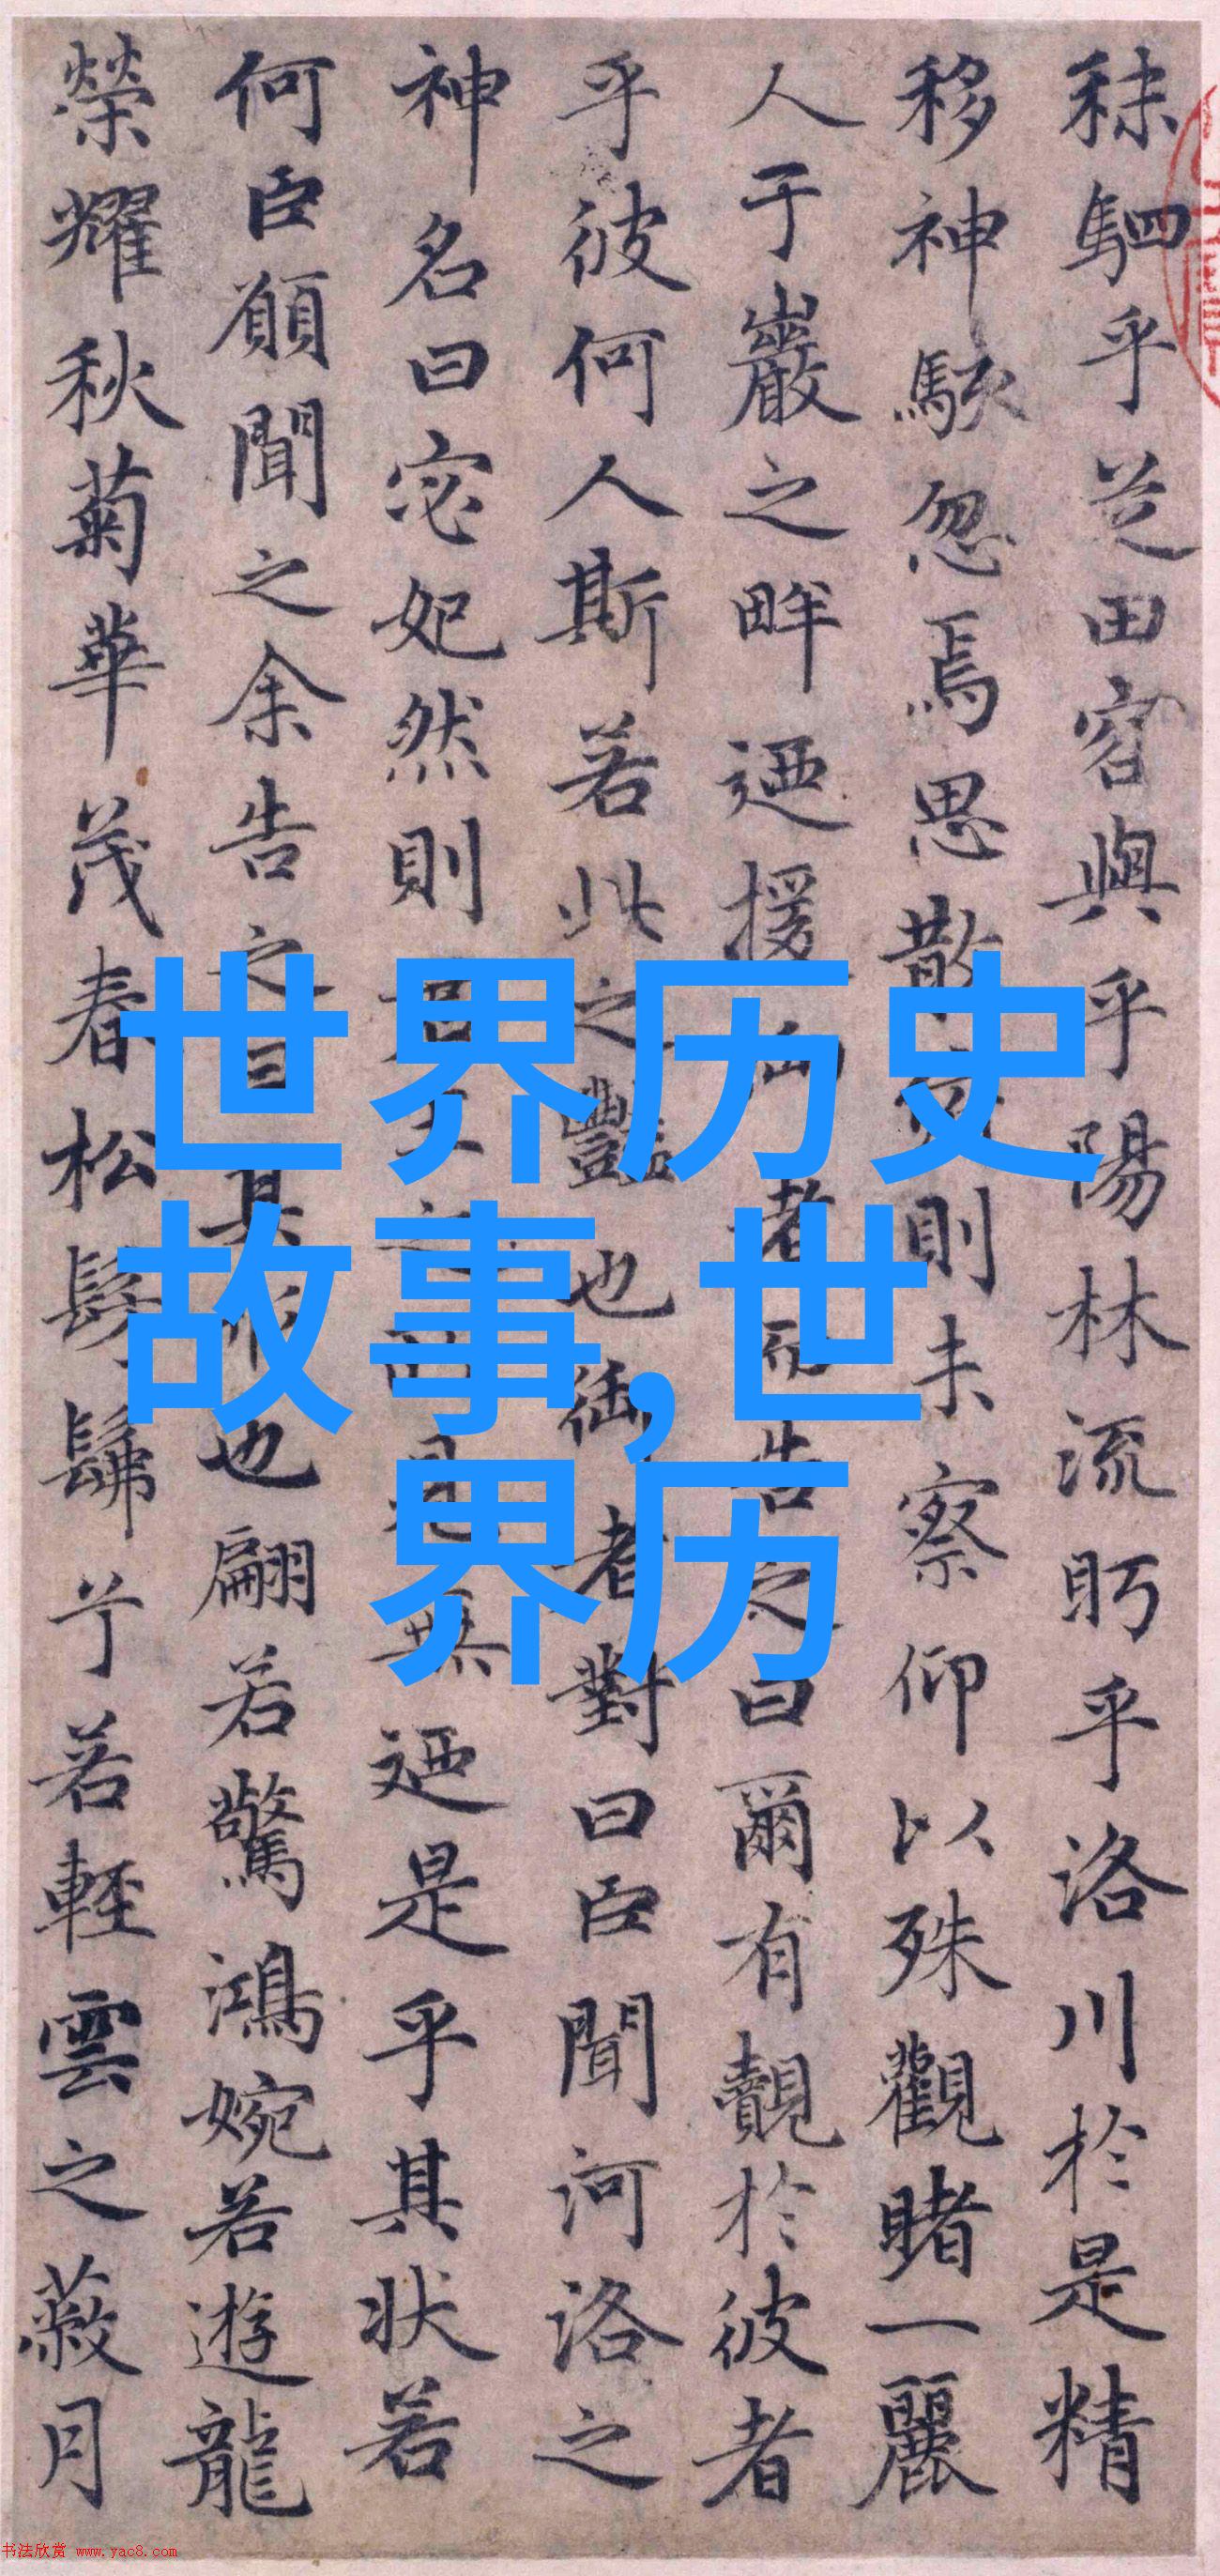 秣駟乎芝田容與乎陽林流眄乎洛川於是精
移神駭忽焉思散則未察仰以殊觀睹一麗
人于巖之畔迺援者而告之曰爾有覿於彼者
乎彼何人斯若此之豔也御者對曰臣聞河洛之
神名曰宓妃然則君王之見無迺是乎其狀若
何臣願聞之余告之曰其形也翩若驚鴻婉若遊龍
榮耀秋菊華茂春松髣髴兮若輕雲之蔽月
世界历史
故事,世
界历
书法欣赏 www.yac8.com